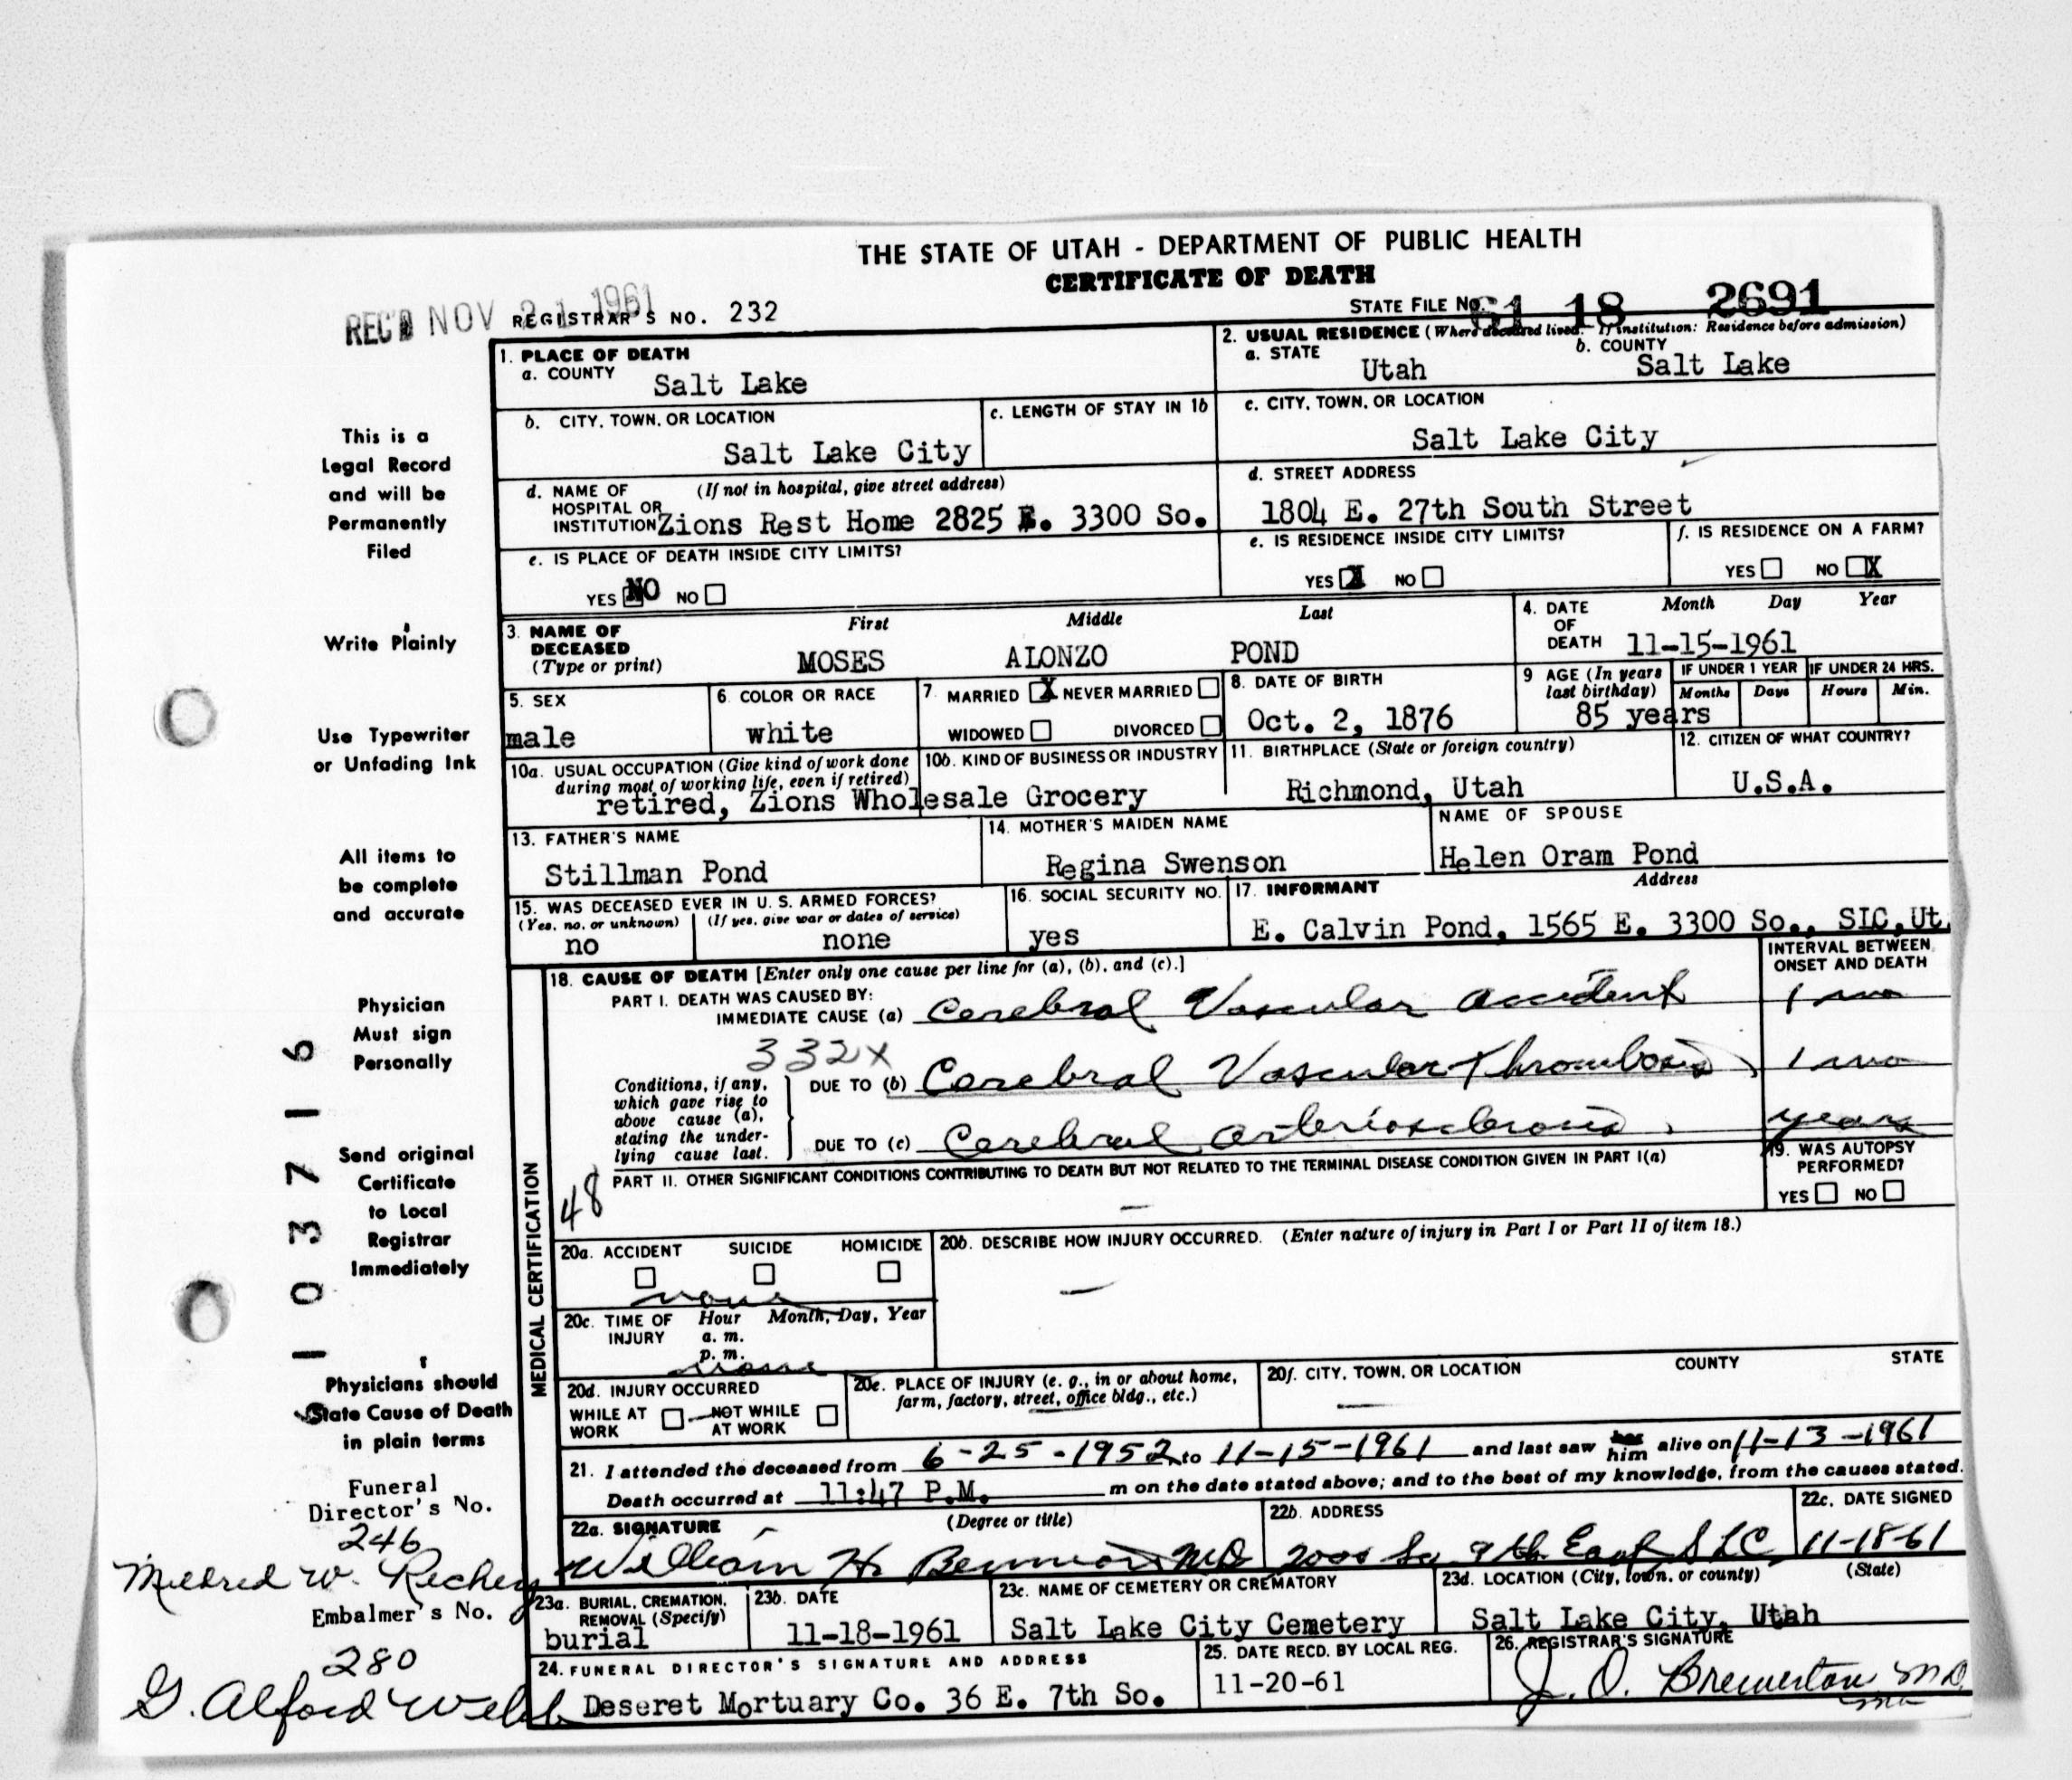 THE STATE OF UTAH - DEPARTMENT OF PUBLIC HEALTH
CERTIFICATE OF DEATH
REC'D NOV 21 1961
REGISTRAR'S NO. 232
STATE FILE NO. 61 18 2691
1. PLACE OF DEATH
a. COUNTY Salt Lake
2. USUAL RESIDENCE (Where deceased lived. If institution: Residence before admission)
a. STATE Utah
b. COUNTY Salt Lake
b. CITY, TOWN, OR LOCATION
Salt Lake City
c. LENGTH OF STAY IN 1b
c. CITY, TOWN, OR LOCATION
Salt Lake City
d. NAME OF HOSPITAL OR INSTITUTION (If not in hospital, give street address)
Zions Rest Home 2825 E. 3300 So.
d. STREET ADDRESS
1804 E. 27th South Street
e. IS PLACE OF DEATH INSIDE CITY LIMITS?
YES NO NO
e. IS RESIDENCE INSIDE CITY LIMITS?
YES X NO
f. IS RESIDENCE ON A FARM?
YES NO X
3. NAME OF DECEASED (Type or print)
First Middle Last
MOSES ALONZO POND
4. DATE OF DEATH Month Day Year
11-15-1961
5. SEX
male
6. COLOR OR RACE
white
7. MARRIED X NEVER MARRIED
WIDOWED DIVORCED
8. DATE OF BIRTH
Oct. 2, 1876
9 AGE (In years last birthday)
85 years
IF UNDER 1 YEAR
Months Days
IF UNDER 24 HRS.
Hours Min.
10a. USUAL OCCUPATION (Give kind of work done during most of working life, even if retired)
10b. KIND OF BUSINESS OR INDUSTRY
retired, Zions Wholesale Grocery
11. BIRTHPLACE (State or foreign country)
Richmond, Utah
12. CITIZEN OF WHAT COUNTRY?
U.S.A.
13. FATHER'S NAME
Stillman Pond
14. MOTHER'S MAIDEN NAME
Regina Swenson
NAME OF SPOUSE
Helen Oram Pond
15. WAS DECEASED EVER IN U. S. ARMED FORCES?
(Yes, no, or unknown) (If yes, give war or dates of service)
no none
16. SOCIAL SECURITY NO.
yes
17. INFORMANT Address
E. Calvin Pond, 1565 E. 3300 So., SLC, Ut.
18. CAUSE OF DEATH [Enter only one cause per line for (a), (b), and (c).]
INTERVAL BETWEEN ONSET AND DEATH
PART I. DEATH WAS CAUSED BY:
IMMEDIATE CAUSE (a) Cerebral Vascular accident 1 mo
332X
Conditions, if any, which gave rise to above cause (a), stating the underlying cause last.
DUE TO (b) Cerebral Vascular Thrombosis 1 mo
DUE TO (c) Cerebral arteriosclerosis years
PART II. OTHER SIGNIFICANT CONDITIONS CONTRIBUTING TO DEATH BUT NOT RELATED TO THE TERMINAL DISEASE CONDITION GIVEN IN PART I(a)
48
—
19. WAS AUTOPSY PERFORMED?
YES NO
MEDICAL CERTIFICATION
20a. ACCIDENT SUICIDE HOMICIDE
none
20b. DESCRIBE HOW INJURY OCCURRED. (Enter nature of injury in Part I or Part II of item 18.)
—
20c. TIME OF INJURY Hour Month, Day, Year
a. m.
p. m.
none
20d. INJURY OCCURRED
WHILE AT WORK NOT WHILE AT WORK
20e. PLACE OF INJURY (e. g., in or about home, farm, factory, street, office bldg., etc.)
20f. CITY, TOWN, OR LOCATION COUNTY STATE
—
21. I attended the deceased from 6-25-1952 to 11-15-1961 and last saw her him alive on 11-13-1961
Death occurred at 11:47 P.M. m on the date stated above; and to the best of my knowledge, from the causes stated.
22a. SIGNATURE (Degree or title)
William H. MD
22b. ADDRESS
2000 So 9th East SLC
22c. DATE SIGNED
11-18-61
23a. BURIAL, CREMATION, REMOVAL (Specify)
burial
23b. DATE
11-18-1961
23c. NAME OF CEMETERY OR CREMATORY
Salt Lake City Cemetery
23d. LOCATION (City, town, or county) (State)
Salt Lake City, Utah
24. FUNERAL DIRECTOR'S SIGNATURE AND ADDRESS
Deseret Mortuary Co. 36 E. 7th So.
25. DATE RECD. BY LOCAL REG.
11-20-61
26. REGISTRAR'S SIGNATURE
J. O. Brewerton MD
This is a
Legal Record
and will be
Permanently
Filed
Write Plainly
Use Typewriter
or Unfading Ink
All items to
be complete
and accurate
Physician
Must sign
Personally
Send original
Certificate
to Local
Registrar
Immediately
Physicians should
State Cause of Death
in plain terms
103716
Funeral
Director's No.
246
Mildred W.
Embalmer's No.
280
G. Alford Webb